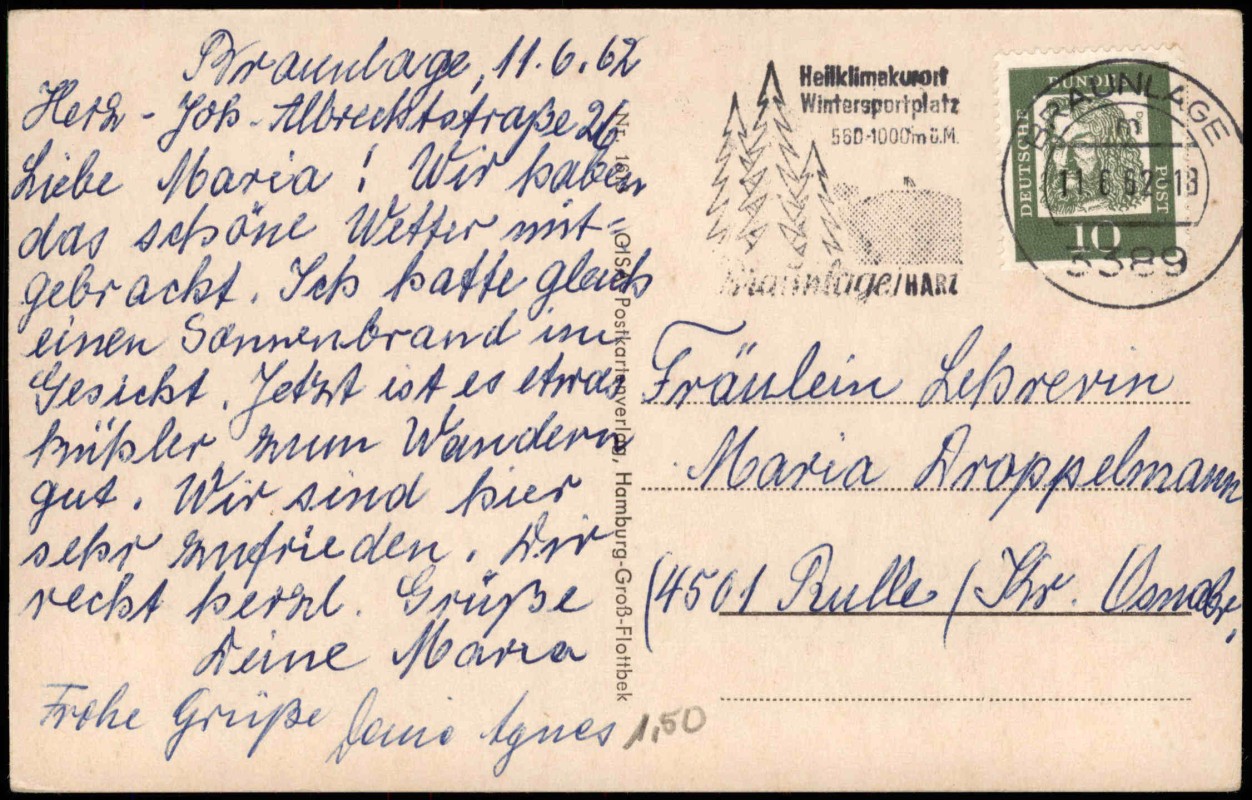 Braunlage, 11.6.62
Herz-Joh-Albrechtstraße 26
Liebe Maria! Wir haben
das schöne Wetter mit-
gebracht. Ich hatte gleich
einen Sonnenbrand im
Gesicht. Jetzt ist es etwas
kühler zum Wandern
gut. Wir sind hier
sehr zufrieden. Dir
recht herzl. Grüße
Deine Maria
Frohe Grüße Agnes
1,50
Nr.
Postkartenverlag, Hamburg-Groß-Flottbek
Heilklimakurort
Wintersportplatz
560-1000m ü.M.
Braunlage/HARZ
DEUTSCHE
BUNDES
POST
10
BRAUNLAGE
11.6.62-18
3389
Fräulein Lehrerin
Maria Droppelmann
(4501 Rulle / Kr. Osnabr,